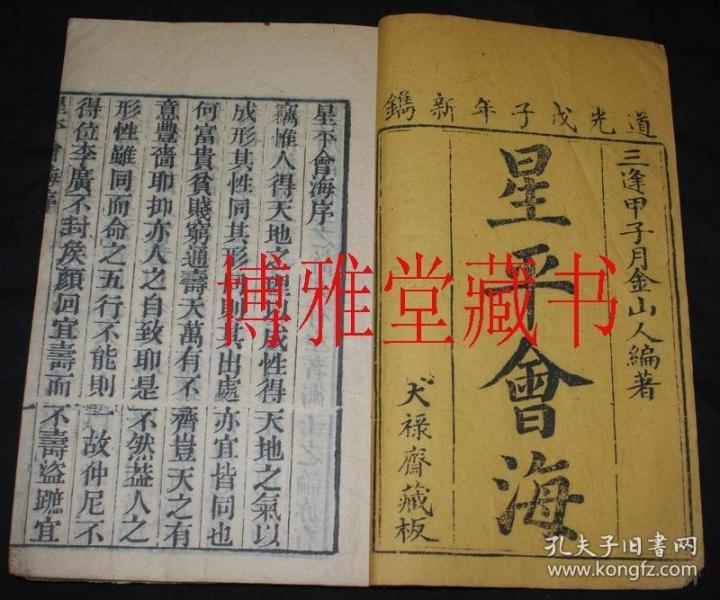 道光戊子年新鐫
三逢甲子月金山人編著
星平會海
天祿齋藏板
星平會海序
竊惟人得天地之理以成性得天地之氣以
成形其性同其形同則其出處亦宜皆同也
何富貴貧賤窮通壽夭萬有不齊豈天之有
意豐嗇耶抑亦人之自致耶是不然蓋人之
形性雖同而命之五行不能則一故仲尼不
得位李廣不封侯顏回宜壽而不壽盜蹠宜
星平會海序
博雅堂藏书
孔夫子旧书网
www.kongfz.com